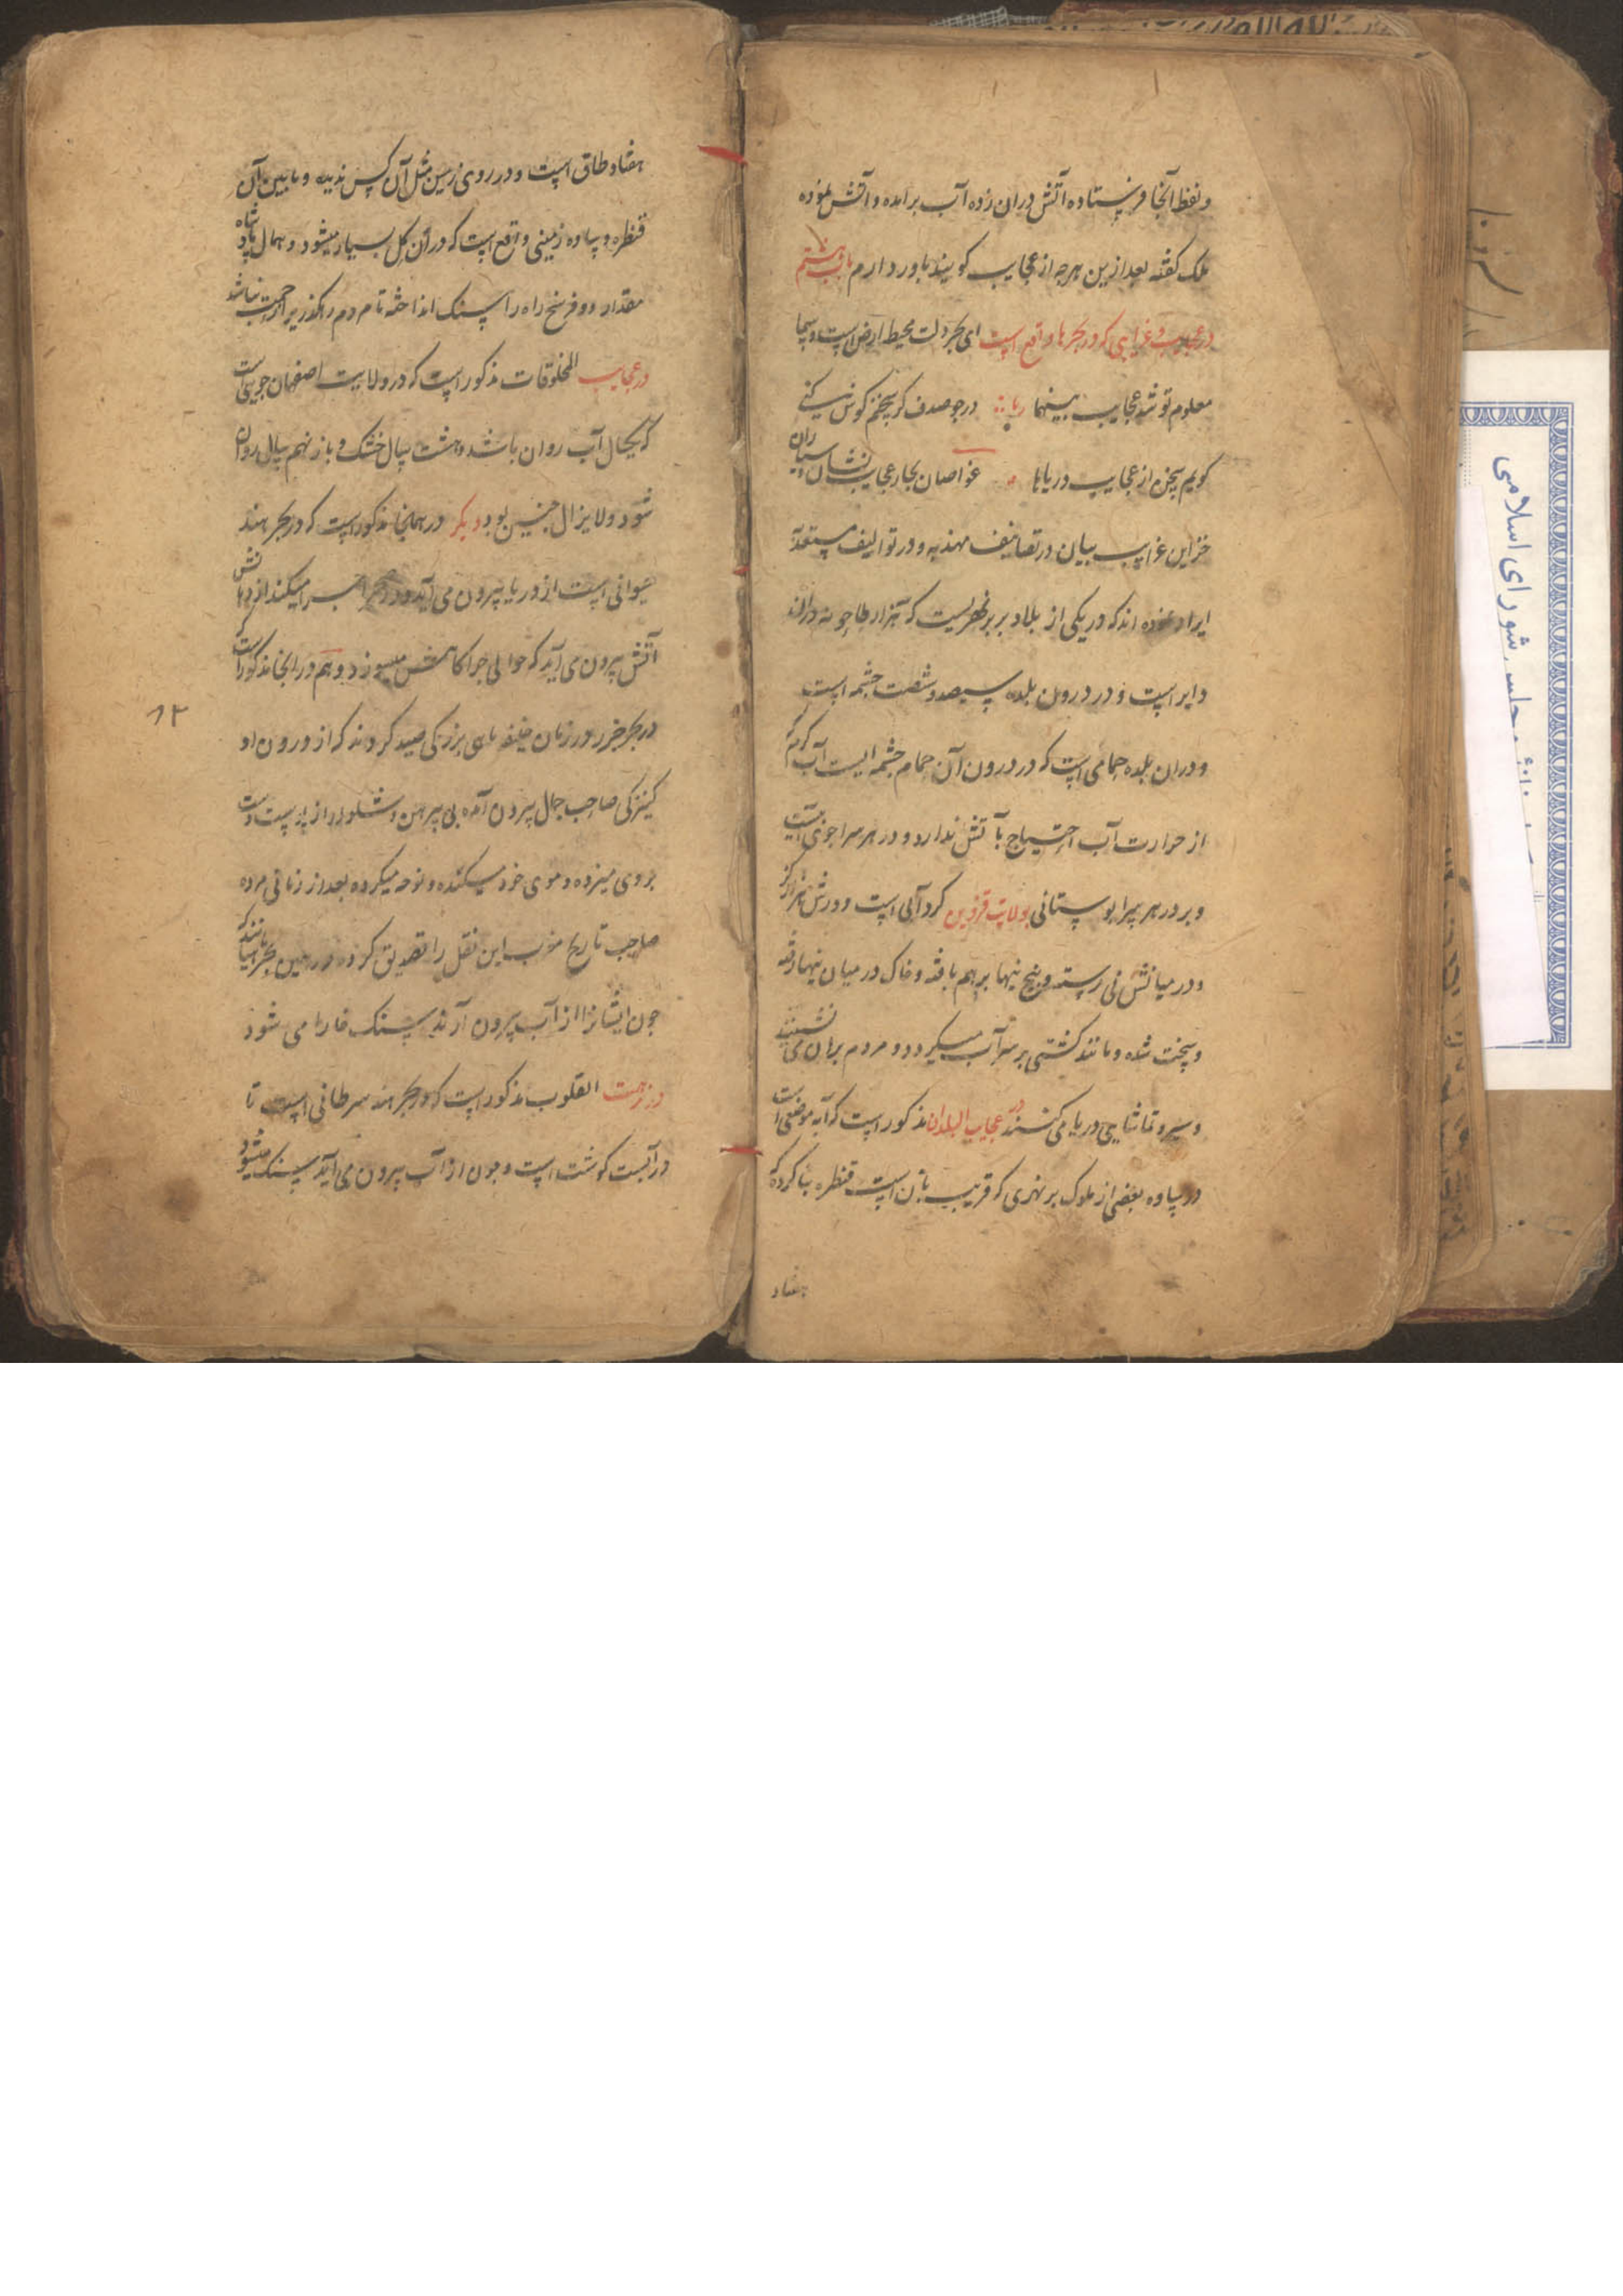 و نفط آنجا فرستاده آتش دران زده آب برآمده و آتش نموده
ملک گفته بعد ازین هرچه از عجایب گویند باور دارم باب هشتم
در عجایب و غرایبی که در بحرها واقع است ای بحر دلت محیط ارض است و سما
معلوم تو شد عجایب بینهما رباعیه در جو صدف گر سخنم گوش کنی
گویم سخن از عجایب دریاها غواصان بحار عجایب نشان و سیاران
خزاین غرایب بیان در تصانیف مهذبه و در توالیف مستعده
ایراد نموده اند که در یکی از بلاد بربر نهریست که هزار طاحونه دران
دایر است و در درون بلده سیصد و شصت چشمه است
و دران بلده حمامی است که در درون آن حمام چشمه ایست آب گرم که
از حرارت آب احتیاج بآتش ندارد و در هر سرا جوی آبیست
و بر در هر سرا بوستانی بولایت قزوین گردآبی است
و در میانش نی رسته و بیخ نیها بر هم بافته و خاک در میان نیها رفته
و سخت شده و مانند کشتی بر سر آب میگردد و مردم بران می نشینند
و سیر و تماشایی دریا می کنند در عجایب البلدان مذکور است که آبه موضعی است
در ساوه بعضی از ملوک بر نهری که قریب بآن است قنطره بنا کرده که
هفتاد
هفتاد طاق است و در روی زمین مثل آن کس ندیده و ما بین آن
قنطره و ساوه زمینی واقع است که در آن گل بسیار میشود و همان پادشاه
مقدار دو فرسنخ راه را سنک انداخته تا مردم را گذر براحت باشد
در عجایب المخلوقات مذکور است که در ولایت اصفهان جویی است
که یکسال آب روان باشد و هشت سال خشک و باز نهم سال روان
شود و لایزال چنین بود دیگر در همانجا مذکور است که در بحر هند
حیوانی است از دریا بیرون می آید و در صحرا چرا میکند از دهانش
آتش بیرون می آید که حوالی چراگاهش میسوزد و هم در آنجا مذکور است که
در بحر خزر در زمان خلیفه ماهی بزرگی صید کردند که از درون او
کنیزکی صاحب جمال بیرون آمده بی پیرهن و شلواری از پوست و دست
بروی میزده و موی خود میکنده و نوحه میکرده بعد از زمانی مرده
صاحب تاریخ مغرب این نقل را تصدیق کرده در چین بحر
چون ایشانرا از آب بیرون آرند سنک خارا می شود
در نزهت القلوب مذکور است که در بحر هند سرطانی است تا
در آبست گوشت است و چون از آب بیرون می آید سنک میشود
۱۲
مجلس شورای اسلامی